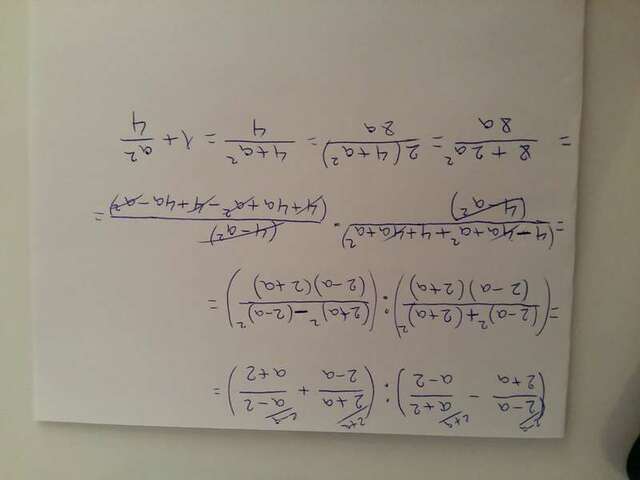 (2-a/2+a - a+2/a-2) : (2+a/2-a + a-2/a+2) =
= ((2-a)²+(2+a)²/(2-a)(2+a)) : ((2+a)²-(2-a)²/(2-a)(2+a)) =
= 4-4a+a²+4+4a+a²/(4-a²) · (4-a²)/(4+4a+a²-4+4a-a²) =
= 8+2a²/8a = 2(4+a²)/8a = 4+a²/4 = 1+a²/4